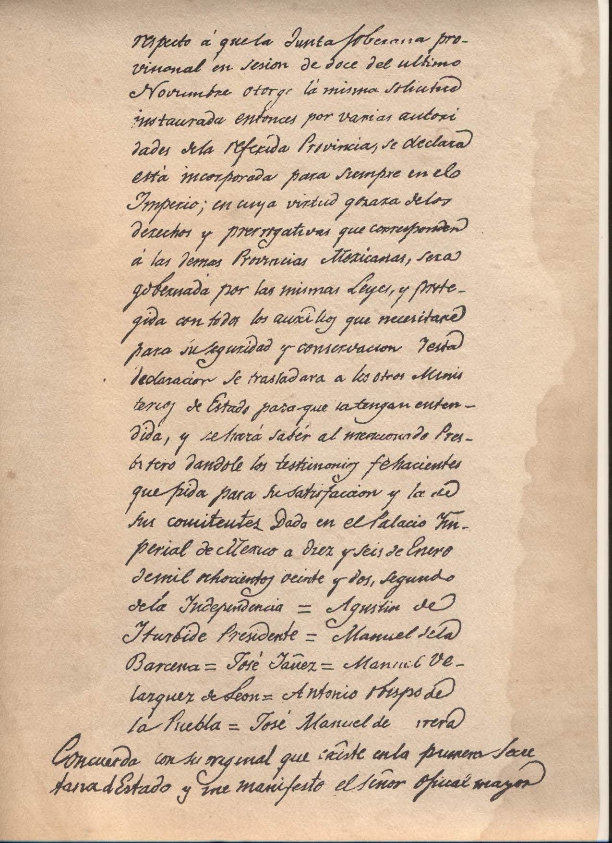 respecto á que la Junta soberana pro-
vicional en sesion de doce del ultimo
Noviembre otorgo la misma solicitud
instaurada entonces por varias autori
dades de la referida Provincia, se declara
está incorporada para siempre en elo
Imperio; en cuya virtud gozara delos
derechos y prerrogativas que corresponden
á las demas Provincias Mexicanas, sera
gobernada por las mismas Leyes, y prote-
gida con todos los auxilios que necesitare
para su seguridad y conservacion Testa
declaracion se trasladara a los otros Minis
terios de Estado para que la tengan enten-
dida, y se hará sabér al mencionado Pres-
bitero dandole los testimonios fehacientes
que pida para su satisfaccion y la de
sus comitentes Dado en el Palacio Im-
perial de Mexico a diez y seis de Enero
de mil ochocientos veinte y dos, segundo
de la Independencia = Agustin de
Iturbide Presidente = Manuel dela
Barcena = José Iáñez = Manuel Ve-
lazquez de Leon = Antonio Obispo de
la Puebla = José Manuel de
Concuerda con su original que existe en la primera Secre
taria d Estado y me manifesto el señor oficial mayor